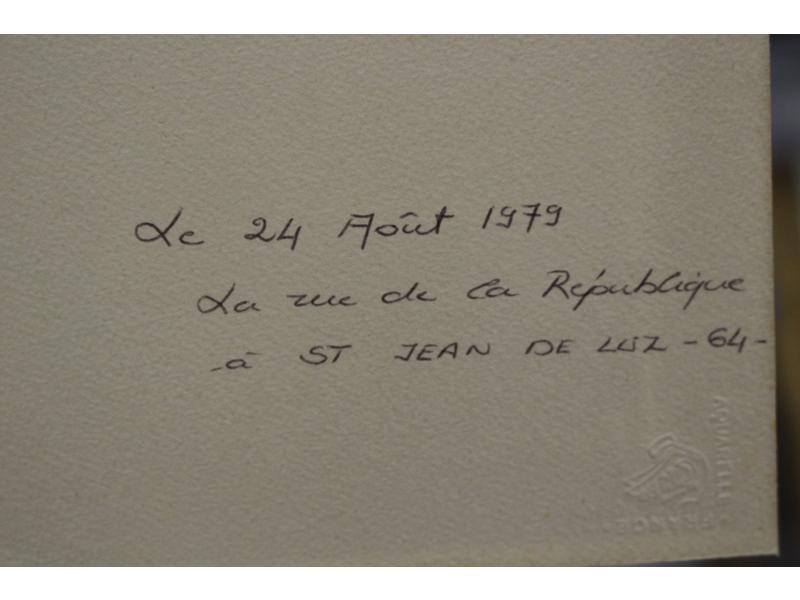 Le 24 Août 1979
La rue de la République
à ST JEAN DE LUZ - 64 -
AQUARELLE
FRANCE